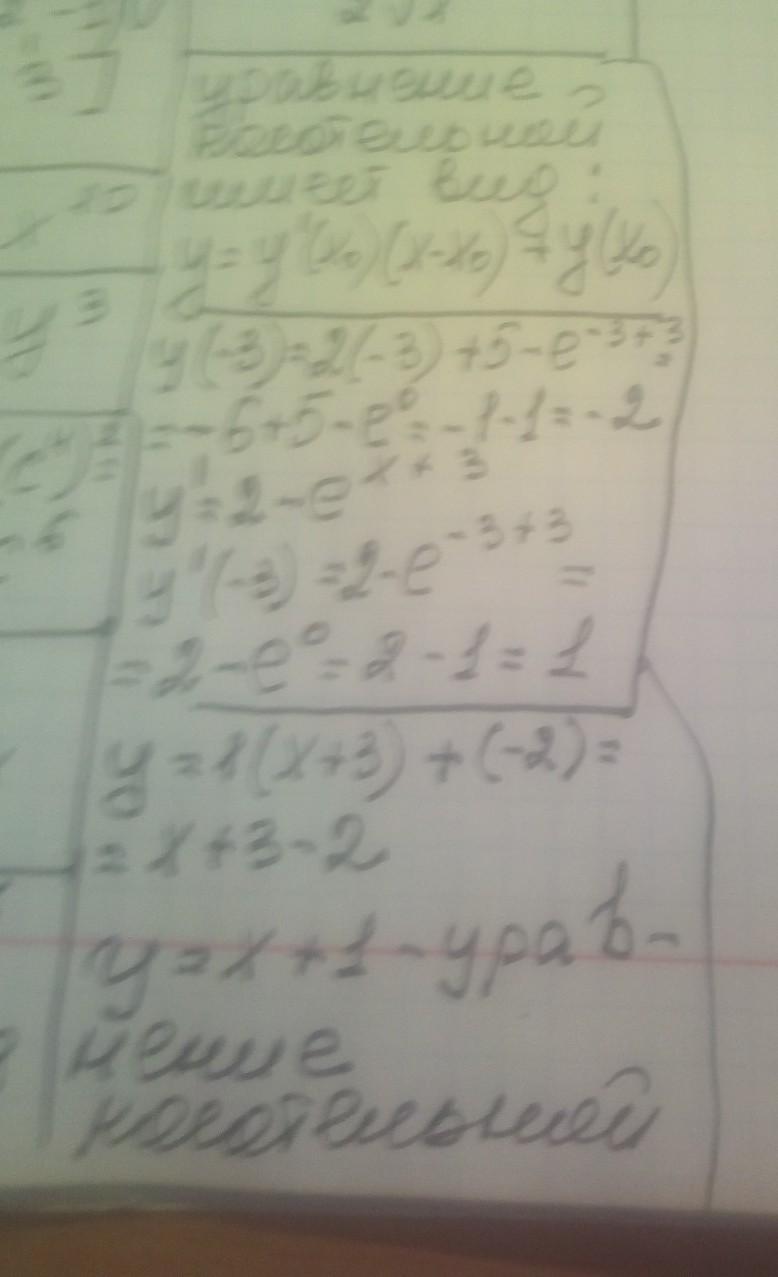 2√x
3]
уравнение
касательной
имеет вид:
y=y'(x₀)(x-x₀)+y(x₀)
x¹⁰
y³
y(-3)=2(-3)+5-e⁻³⁺³=
=-6+5-e⁰=-1-1=-2
y'=2-eˣ⁺³
y'(-3)=2-e⁻³⁺³=
=2-e⁰=2-1=1
y=1(x+3)+(-2)=
=x+3-2
y=x+1-урав-
нение
касательной